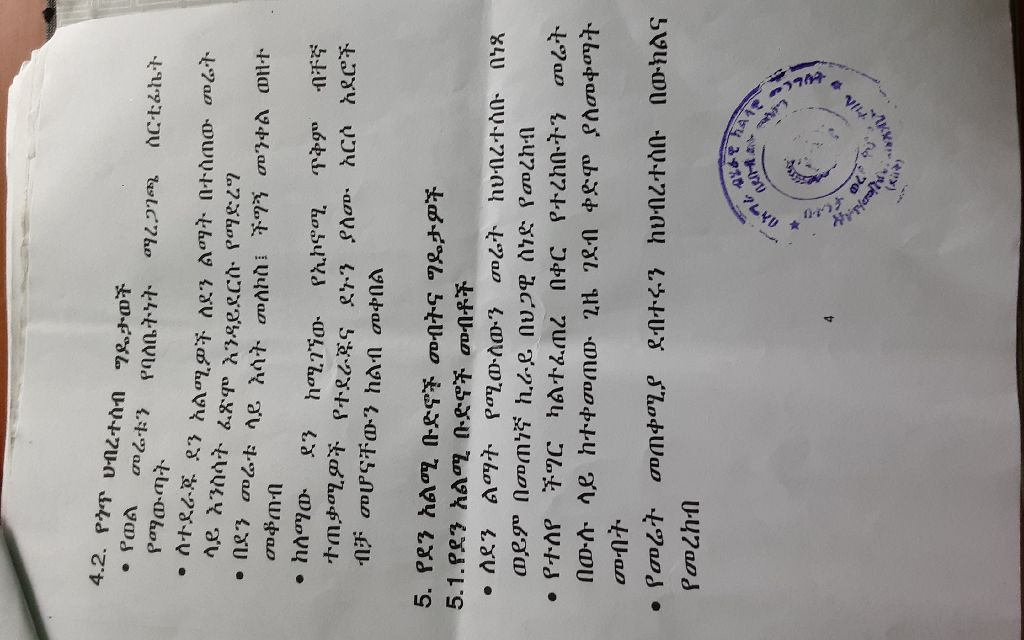 4.2. የንኡ ህብረተሰብ ግዴታወች
• የወል መሬቱን የባለቤትነት ማረጋገጫ ሰርቲፊኬት
የማውጣት
• ለተደራጁ ደን አልሚዎች ለደን ልማት በተሰጠው መሬት
ላይ እንስሳት ፈጽሞ እንዳይደርሱ የማድረግ
• በደን መሬቱ ላይ እሳት መለኮስ፤ ችግኝ መንቀል ወዘተ
መቆጠብ
• ከለማው ደን ከሚገኘው የኢኮኖሚ ጥቅም ብቸኛ
ተጠቃሚዎች የተደራጁና ደኑን ያለሙ አርሶ አደሮች
ብቻ መሆናቸውን ከልብ መቀበል
5. የደን አልሚ ቡድኖች መብትና ግዴታዎች
5.1. የደን አልሚ ቡድኖች መብዶች
• ለደን ልማት የሚውለውን መሬት ከህብረተሰቡ በነጻ
ወይም በመጠነኛ ኪራይ በህጋዊ ሰነድ የመረከብ
• የተለየ ችግር ካልተፈጠረ በቀር የተረከቡትን መሬት
በውሉ ላይ ከተቀመጠው ጊዜ ገደብ ቀድሞ ያለመቀማት
መብት
• የመሬት መጠቀሚያ ደብተሩን ከህብረተሰቡ በውክልና
የመረከብ
4